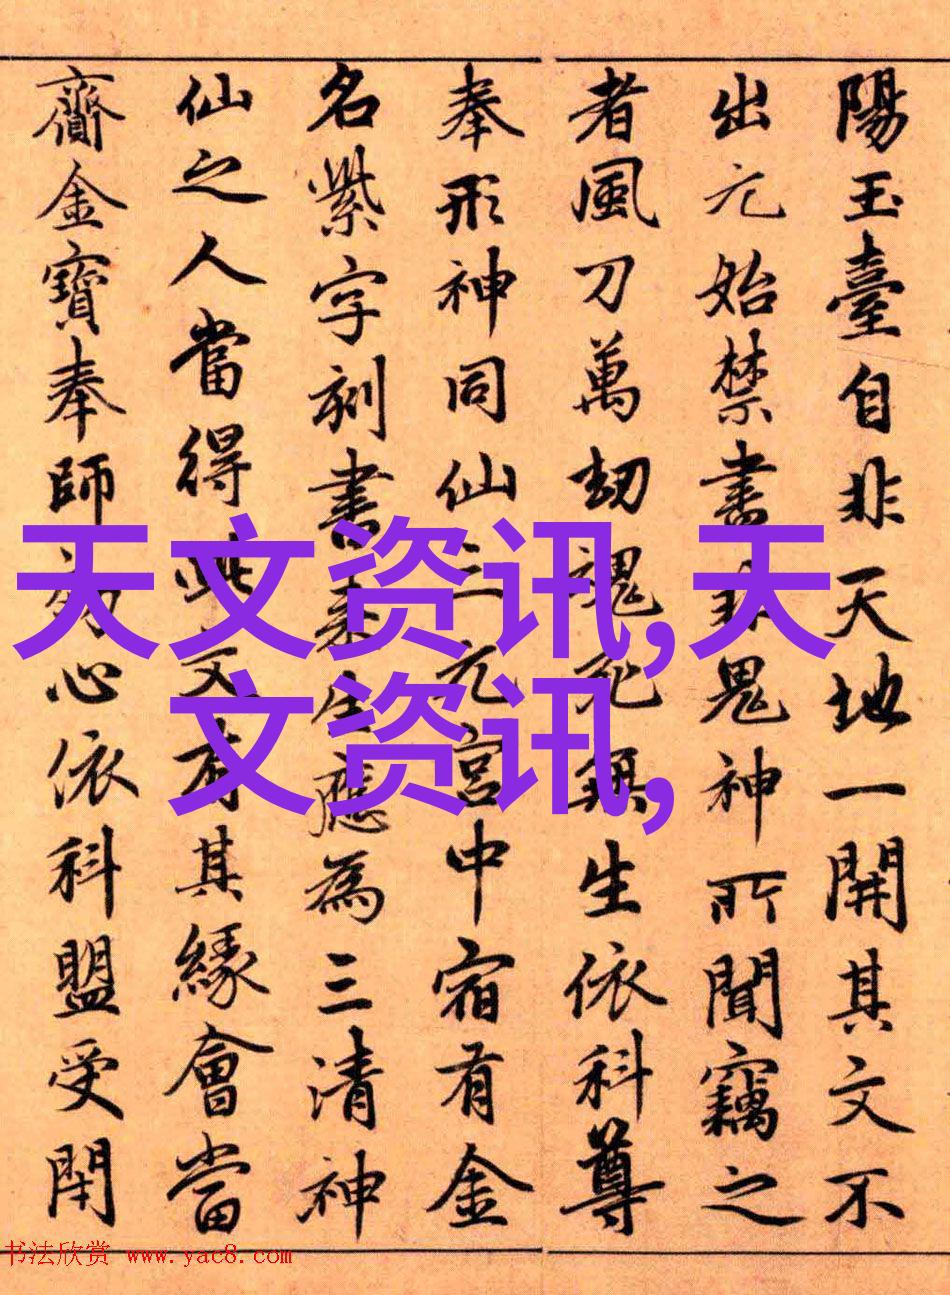 陽玉臺自非天地一開其文不
出元始禁書非鬼神所聞竊之
者風刀萬劫魂死無生依科尊
奉形神同仙三元宮中宿有金
名紫字刻書來生應為三清神
仙之人當得此文有其緣會當
齎金寶奉師效心依科盟受閇
天文资讯,天
文资讯,
书法欣赏 www.yac8.com